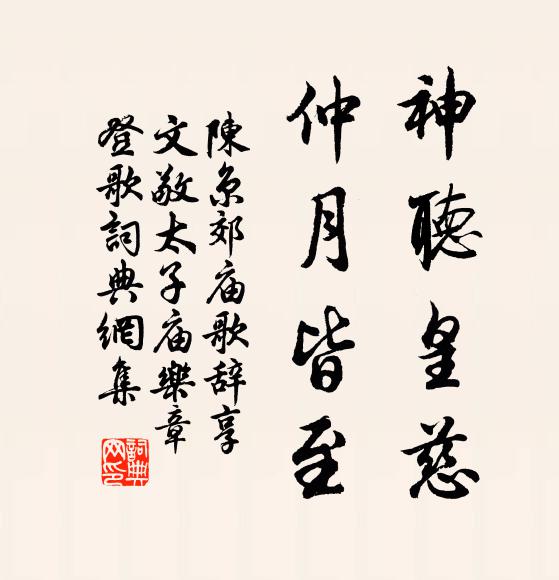 神聽皇慈
仲月皆至
陳京郊庙歌辞享
文敬太子庙樂章
登歌詞典網集
詞典网印